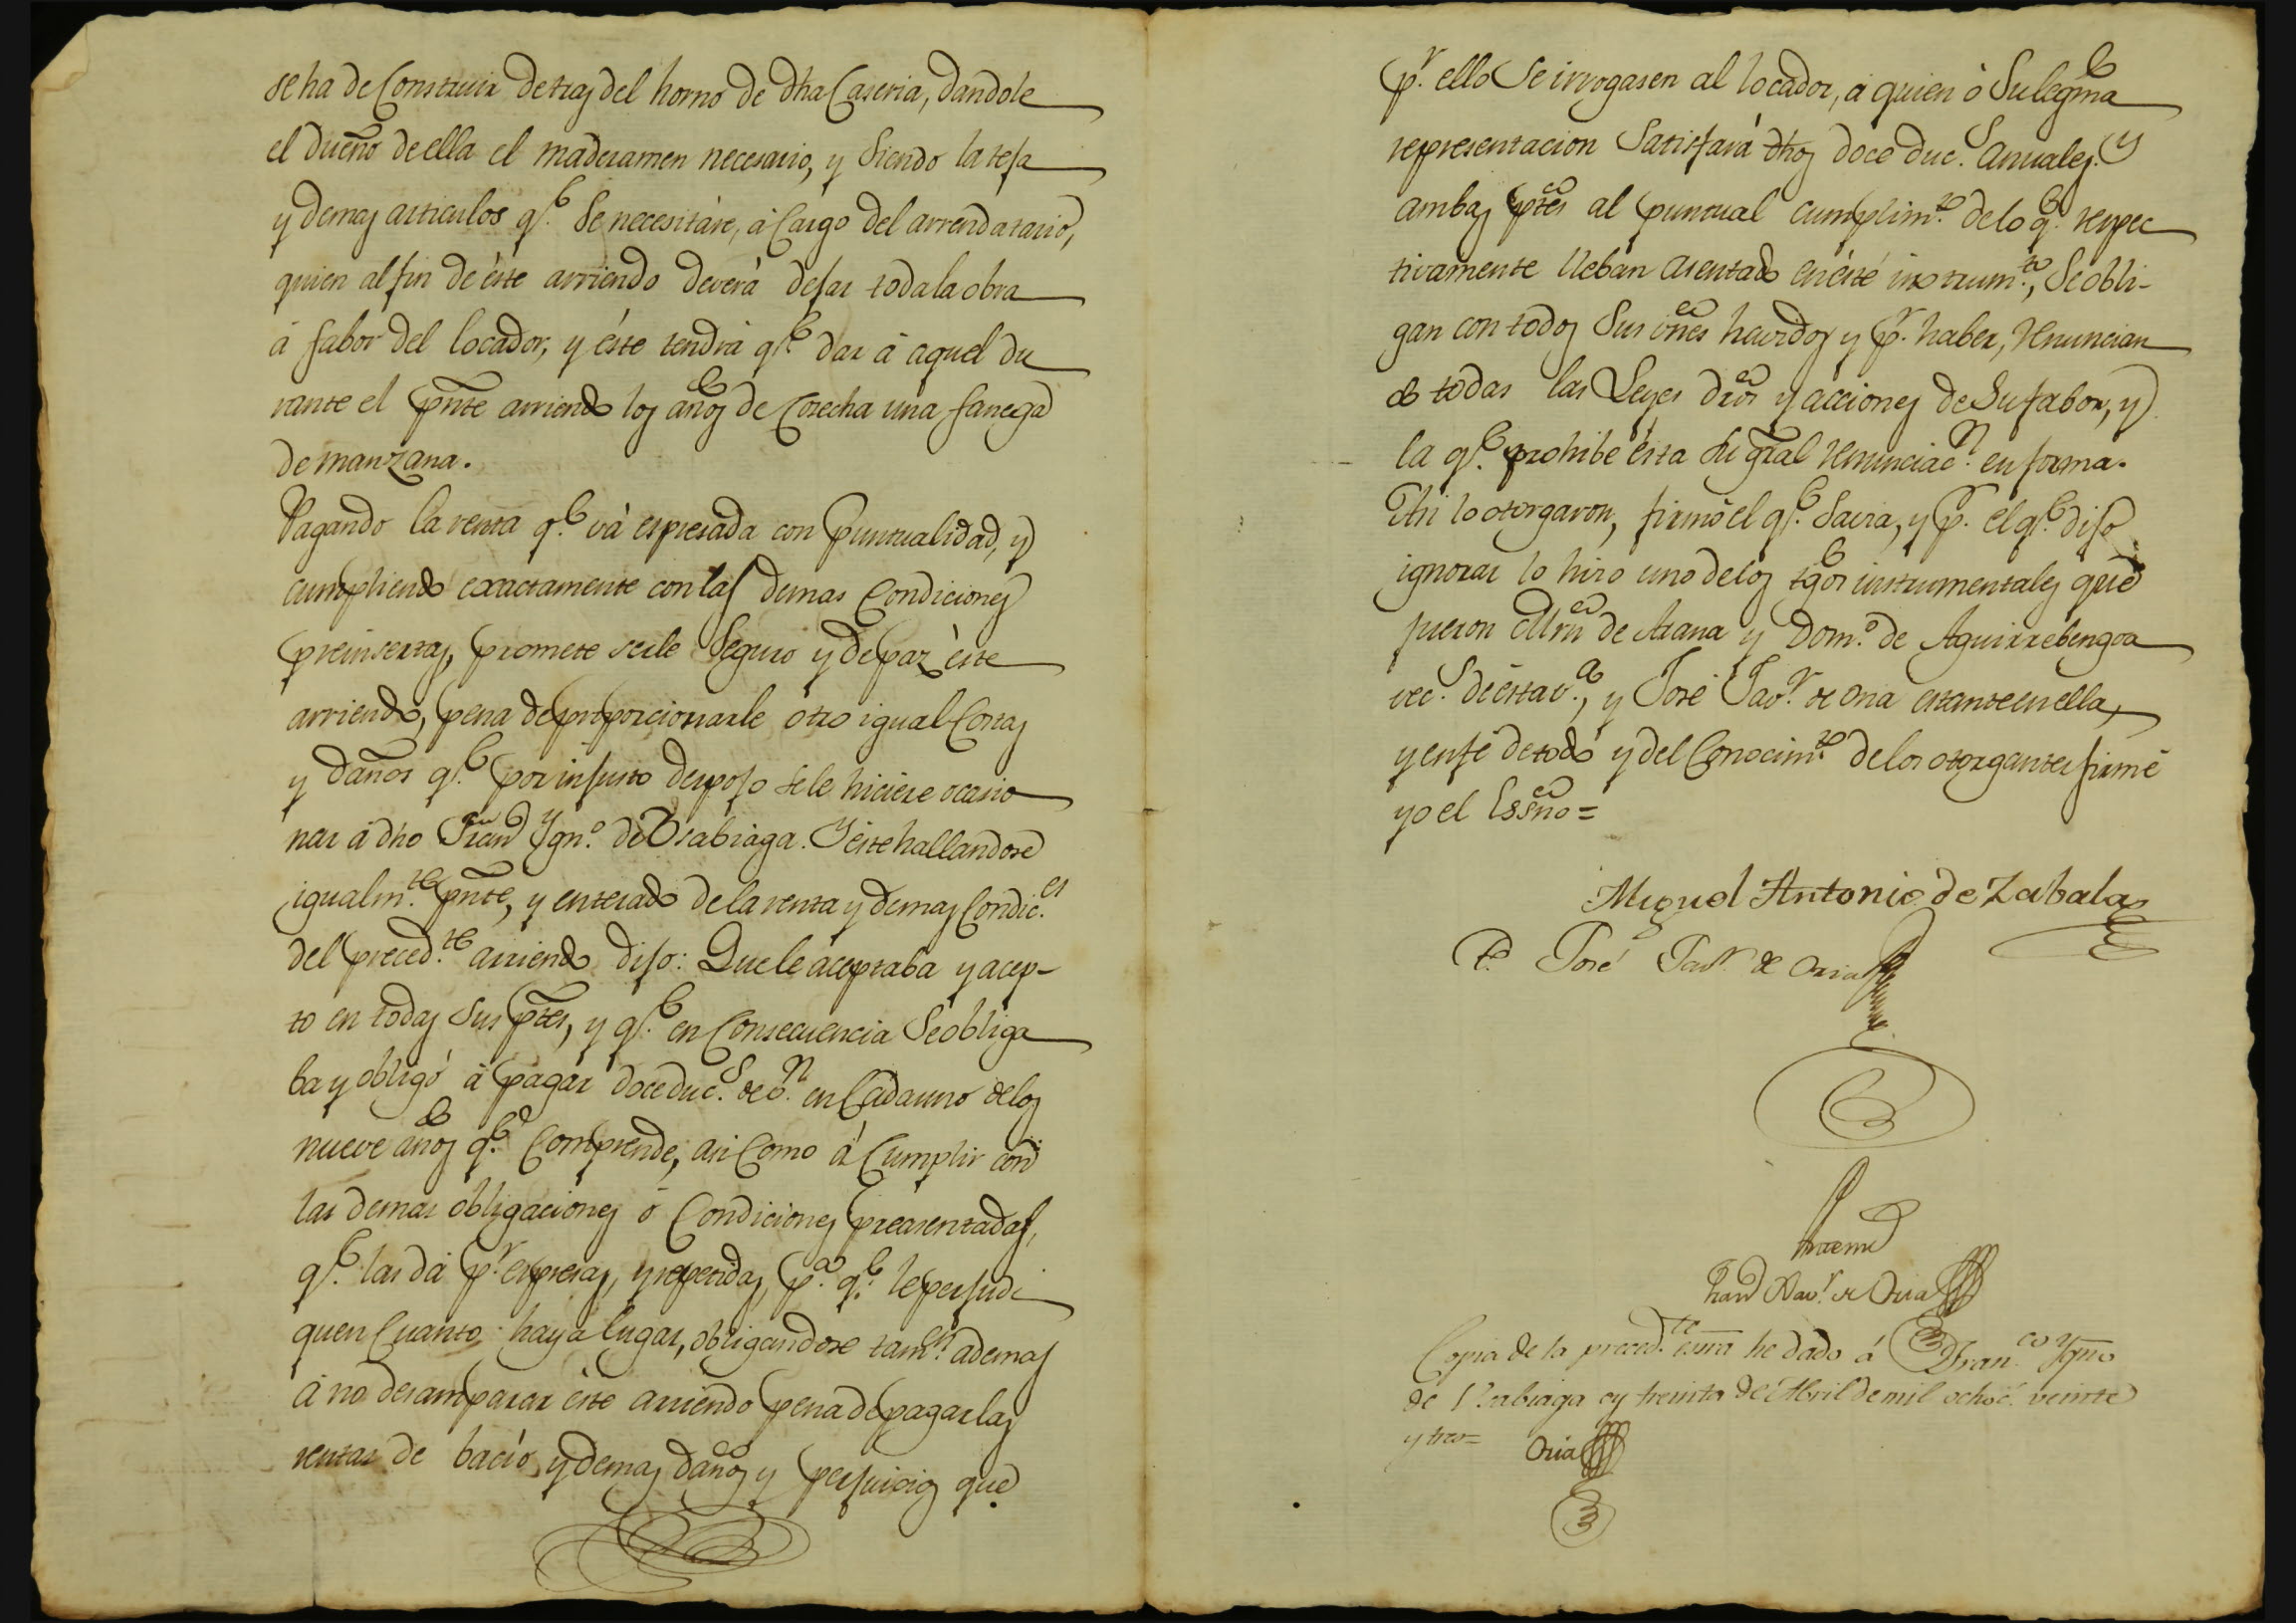 se ha de Construir detras del horno de dha Caseria, dandole
el dueño de ella el maderamen necesario, y siendo la teja
y demas articulos q.e se necesitáre, à Cargo del arrendatario,
quien al fin de éste arriendo deverà dejar toda la obra
á fabor del locador, y éste tendrà q.e dar á aquel du
rante el pnte arriendo los años de Cosecha una fanega
de manzana.
Pagando la renta q.e và espresada con puntualidad, y
cumpliendo exactamente con las demas Condiciones
preinsertas, promete serle seguro y de paz éste
arriendo, pena de proporcionarle otro igual Costas
y daños q.e por injusto despojo se le hiciere ocasio
nar á dho Fran.co Ygn.o de Vsabiaga. Y éste hallandose
igualm.te pnte, y enterado de la renta y demas Condic.es
del preced.te arriendo dijo: Que le aceptaba y acep-
tó en todas sus ptes, y q.e en Consecuencia se obliga
ba y obligó á pagar doce duc.s de v.n en Cada uno de los
nueve años q.e Comprende, asi Como á Cumplir con
las demas obligaciones ó Condiciones preasentadas,
q.e las dá p.r espresas, y repetidas, p.a q.e le perjudi
quen Cuanto haya lugar, obligandose tamb.n ademas
á no desamparar éste arriendo pena de pagar las
rentas de bacío, y demas daños y perjuicios que
p.r ello se irrogasen al locador, á quien ò su legma
representacion satisfará dhos doce duc.s anuales. Y
ambas ptes al puntual cumplim.to de lo q.e respec
tivamente lleban asentado en éste instrum.to, se obli-
gan con todos sus vnes havidos y p.r haber, renuncian
do todas las Leyes dros y acciones de su fabor, y
la q.e prohibe ésta su gral renunciac.n en forma.
Asi lo otorgaron, firmó el q.e savia, y p.r el q.e dijo
ignorar lo hizo uno de los tgos instrumentales que
fueron Mrn de Arana y Dom.o de Aguirrebengoa
vec.s de esta v.a, y José Jav.r de Oria estante en ella,
y en fé de todo y del Conocim.to de los otorgantes firmé
yo el Essno=
Miguel Antonio de Zabala
T.o José Jav.r de Oria
Ante mi
Fran.co Xav.r de Oria
Copia de la preced.te esna he dado á D Fran.co Ygno
de Vsabiaga oy treinta de Abril de mil ochoc.s veinte
y tres=
Oria